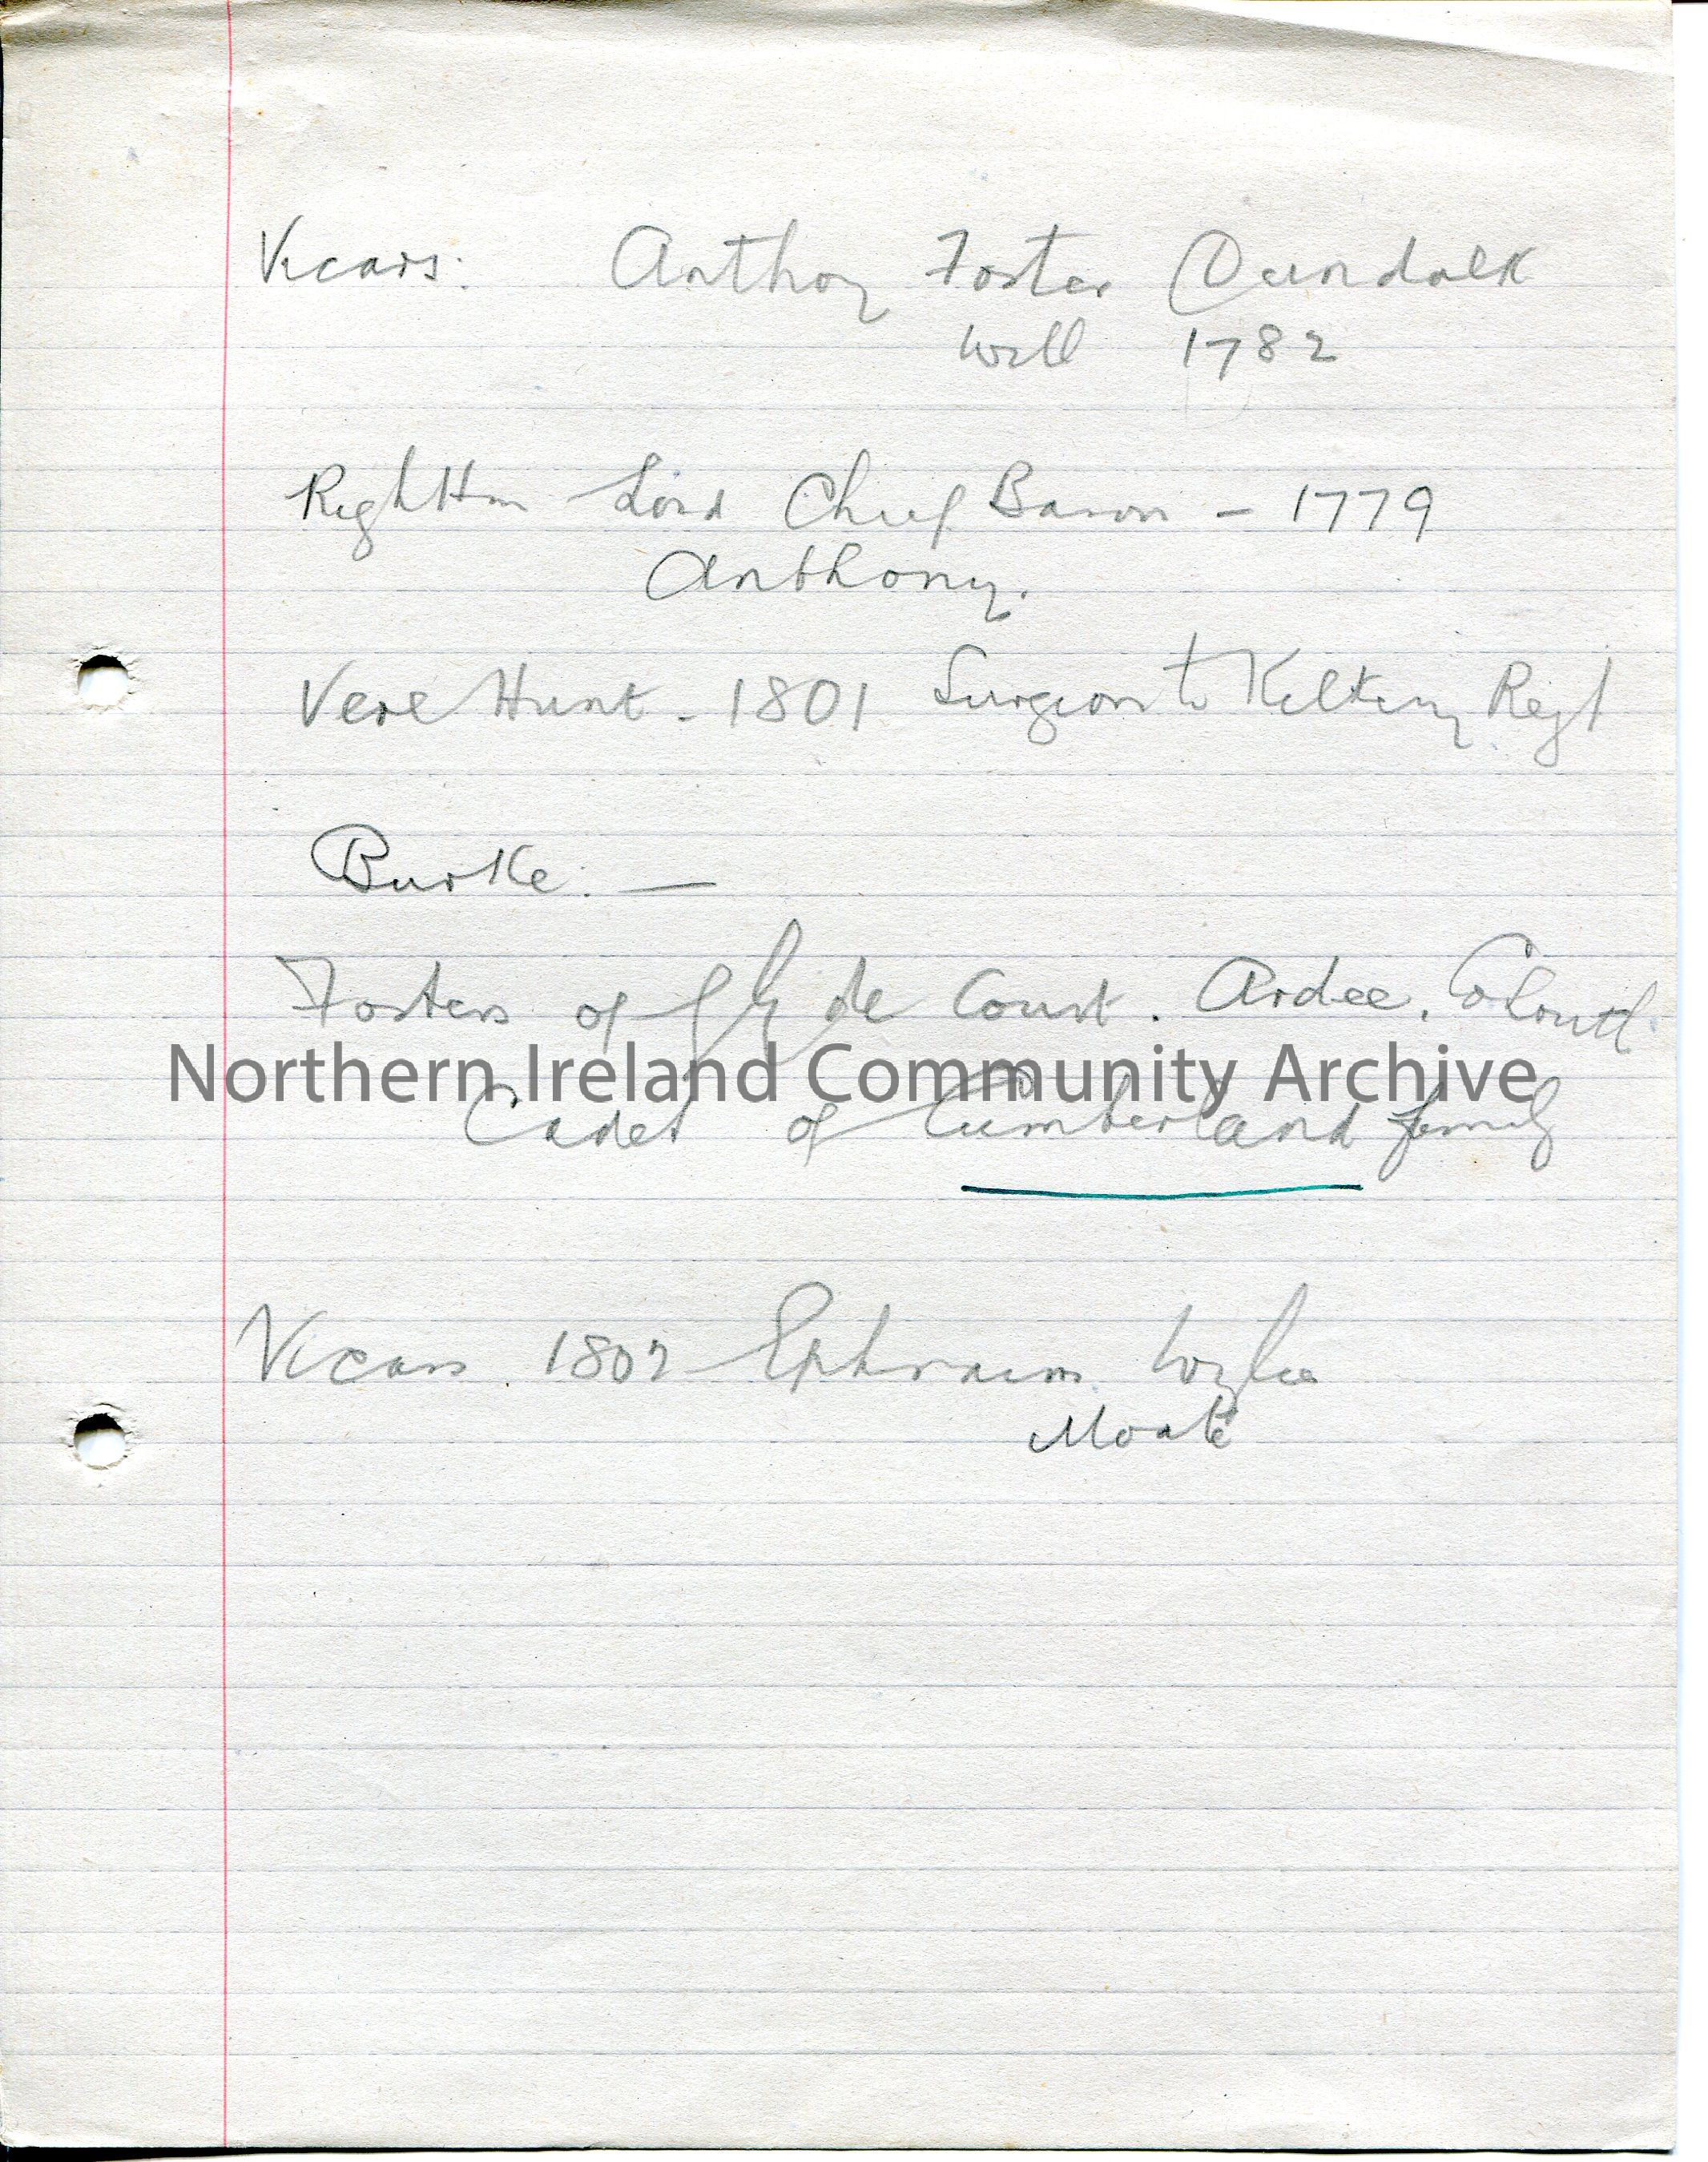 Vicars: Anthony Foster Dundalk
Will 1782
Right Hon Lord Chief Baron - 1779
Anthony.
Vere Hunt - 1801 Surgeon to Kilkenny Regt
Burke: —
Fosters of Glyde Court. Ardee. Co Louth.
Northern Ireland Community Archive
Cadet of Cumberland family
Vicars 1802 Ephraim Wylie
Moate